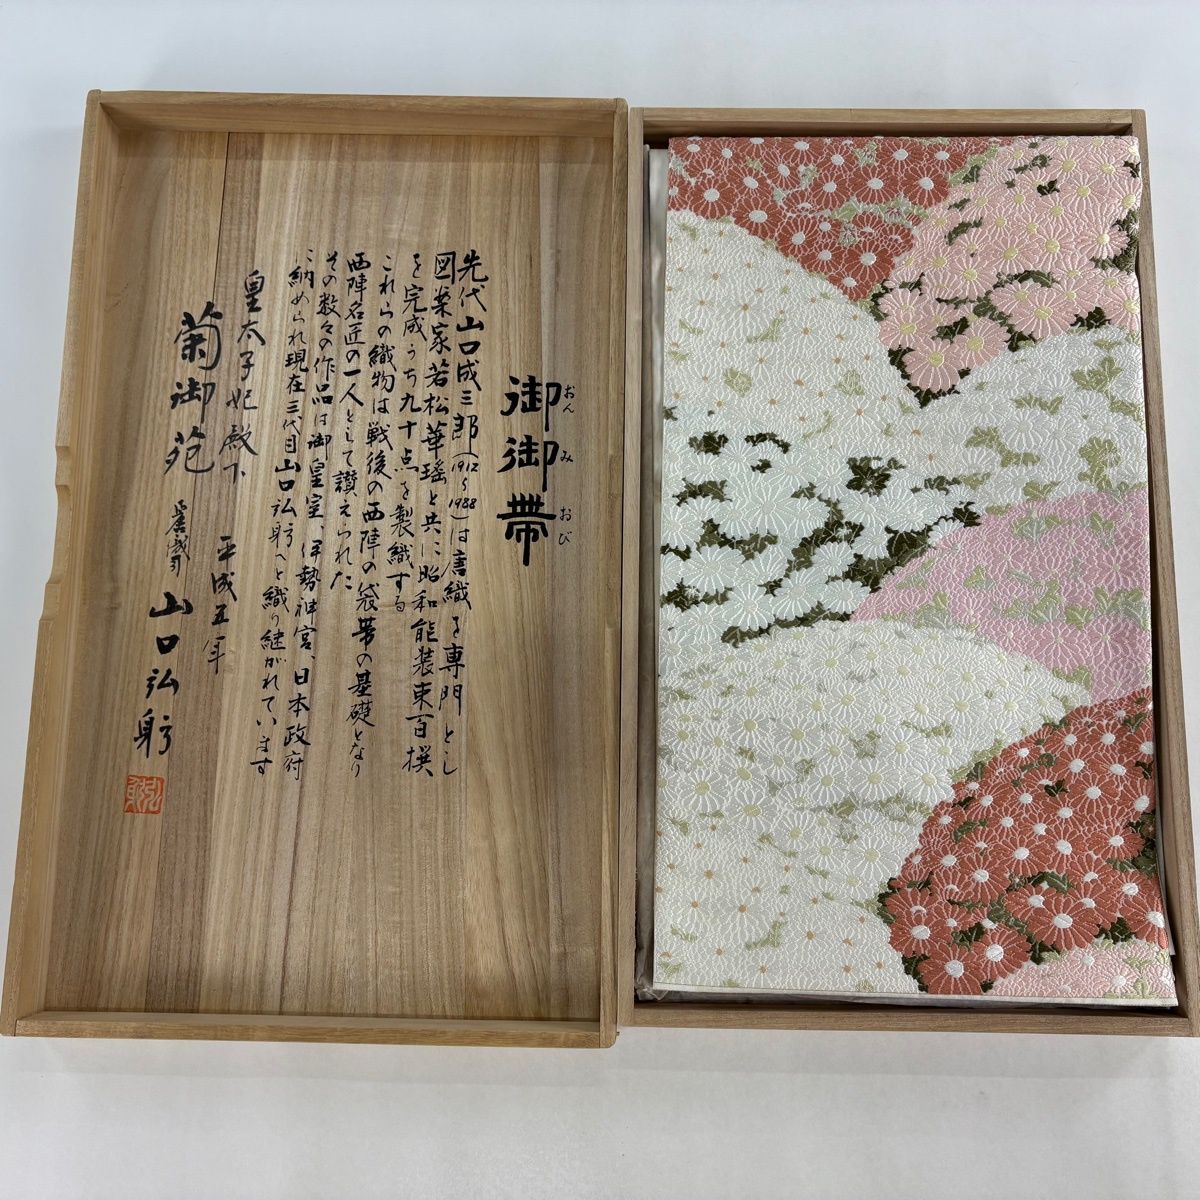 御御帯
おんみおび
先代山口成三郎(1912~1988)は唐織を専門とし
図案家若松華瑶と共に昭和能装束百撰
を完成うち九十点を製織する
これらの織物は戦後の西陣の袋帯の基礎となり
西陣名匠の一人として讃えられた
その数々の作品は御皇室、伊勢神宮、日本政府
に納められ現在三代目山口弘躬へと織り継がれています
皇太子妃殿下 平成五年
菊御苑
山口弘躬